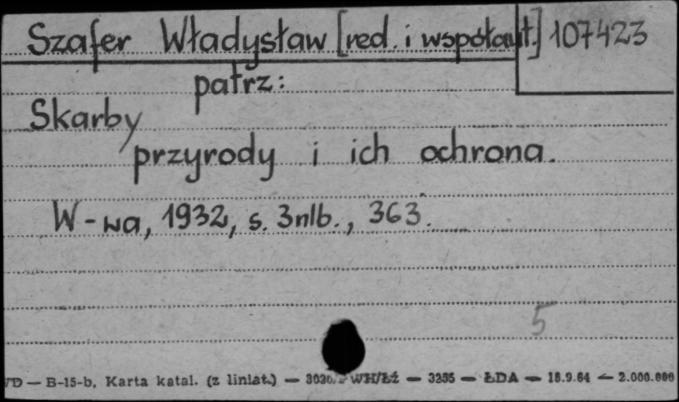 Szafer Władysław [red. i współaut.] 107423
patrz:
Skarby
przyrody i ich ochrona.
W-wa, 1932, s. 3nlb., 363.
5
B-15-b, Karta katal. (z liniat.) — WH/ŁŹ — 3255 — ŁDA — 18.9.64 — 2.000.000